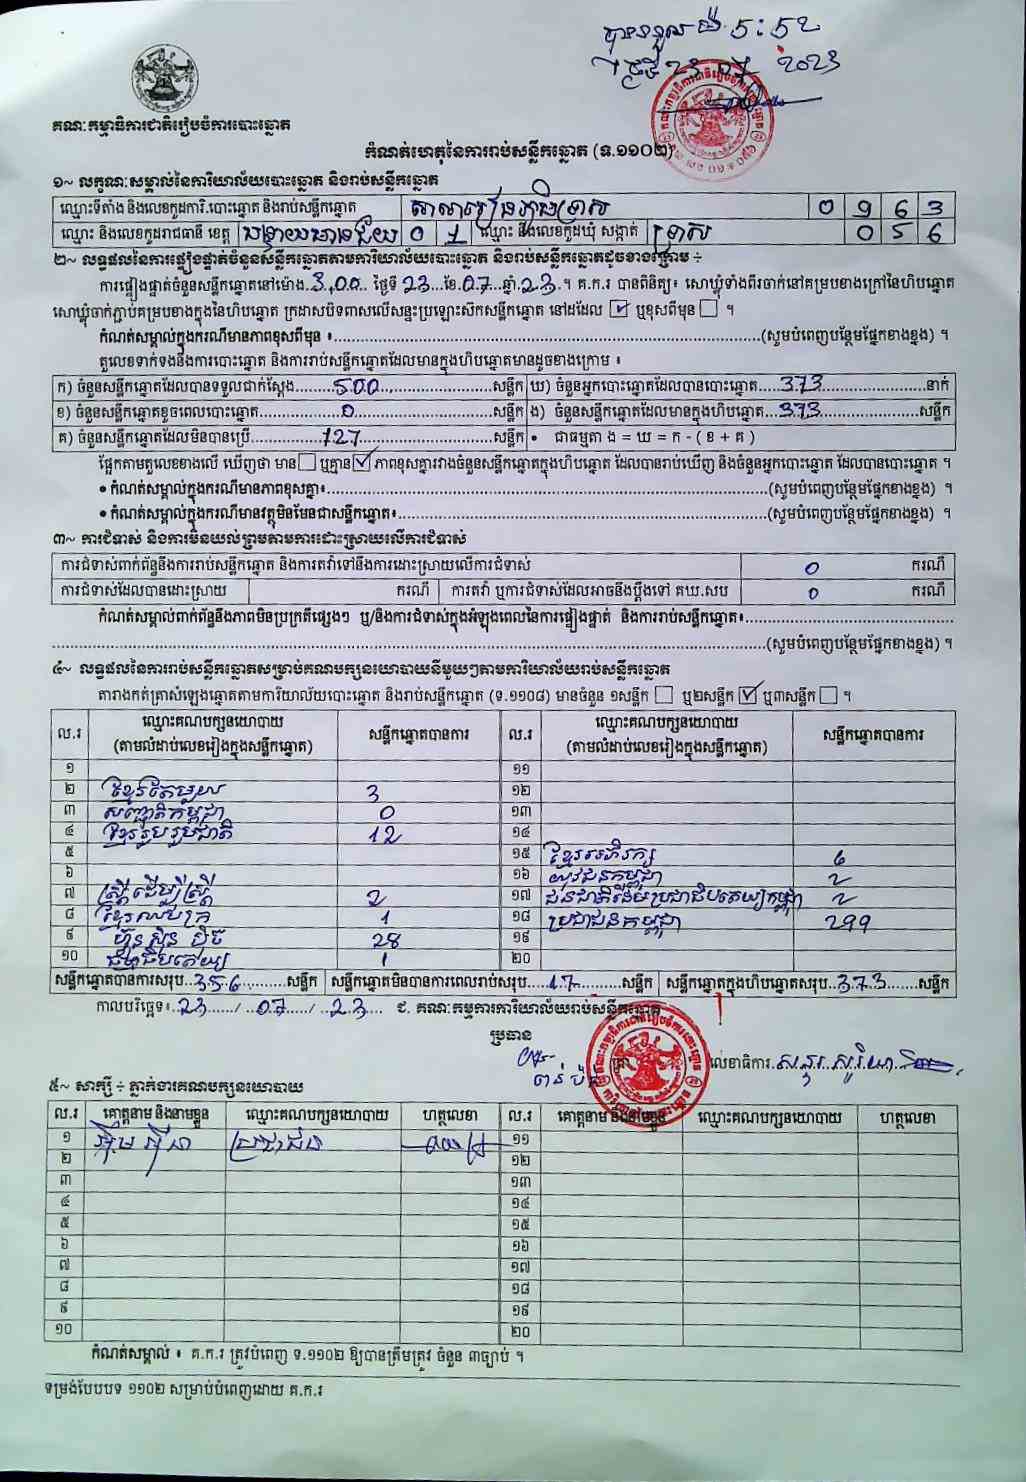 បានទទួល ម៉ 5:52
ថ្ងៃទី 23 07 2023
គណៈកម្មាធិការជាតិរៀបចំការបោះឆ្នោត
កំណត់ហេតុនៃការរាប់សន្លឹកឆ្នោត (ទ.១១០២)
១~ លក្ខណៈសម្គាល់នៃការិយាល័យបោះឆ្នោត និងរាប់សន្លឹកឆ្នោត
ឈ្មោះទីតាំង និងលេខកូដការិ.បោះឆ្នោត និងរាប់សន្លឹកឆ្នោត សាលារៀន 0 9 6 3
ឈ្មោះ និងលេខកូដរាជធានី ខេត្ត បន្ទាយមានជ័យ 0 1 ឈ្មោះ និងលេខកូដឃុំ សង្កាត់ 0 5 6
២~ លទ្ធផលនៃការផ្ទៀងផ្ទាត់ចំនួនសន្លឹកឆ្នោតតាមការិយាល័យបោះឆ្នោត និងរាប់សន្លឹកឆ្នោតដូចខាងក្រោម ÷
ការផ្ទៀងផ្ទាត់ចំនួនសន្លឹកឆ្នោតនៅម៉ោង 3,00 ថ្ងៃទី 23 ខែ 07 ឆ្នាំ 23 ។ គ.ក.រ បានពិនិត្យ៖ សោឃ្លុំទាំងពីរចាក់នៅគម្របខាងក្រៅនៃហិបឆ្នោត
សោឃ្លុំចាក់ភ្ជាប់គម្របខាងក្នុងនៃហិបឆ្នោត ក្រដាសបិទពាសលើសន្ទះប្រឡោះស៊កសន្លឹកឆ្នោត នៅដដែល ☑ ឬខុសពីមុន ☐ ។
កំណត់សម្គាល់ក្នុងករណីមានភាពខុសពីមុន ៖ (សូមបំពេញបន្ថែមផ្នែកខាងខ្នង) ។
តួលេខទាក់ទងនឹងការបោះឆ្នោត និងការរាប់សន្លឹកឆ្នោតដែលមានក្នុងហិបឆ្នោតមានដូចខាងក្រោម ៖
ក) ចំនួនសន្លឹកឆ្នោតដែលបានទទួលជាក់ស្ដែង 500 សន្លឹក ឃ) ចំនួនអ្នកបោះឆ្នោតដែលបានបោះឆ្នោត 373 នាក់
ខ) ចំនួនសន្លឹកឆ្នោតខូចពេលបោះឆ្នោត 0 សន្លឹក ង) ចំនួនសន្លឹកឆ្នោតដែលមានក្នុងហិបឆ្នោត 373 សន្លឹក
គ) ចំនួនសន្លឹកឆ្នោតដែលមិនបានប្រើ 127 សន្លឹក • ជាធម្មតា ង = ឃ = ក - ( ខ + គ )
ផ្អែកតាមតួលេខខាងលើ ឃើញថា មាន ☐ ឬគ្មាន ☑ ភាពខុសគ្នារវាងចំនួនសន្លឹកឆ្នោតក្នុងហិបឆ្នោត ដែលបានរាប់ឃើញ និងចំនួនអ្នកបោះឆ្នោត ដែលបានបោះឆ្នោត ។
• កំណត់សម្គាល់ក្នុងករណីមានភាពខុសគ្នា៖ (សូមបំពេញបន្ថែមផ្នែកខាងខ្នង) ។
• កំណត់សម្គាល់ក្នុងករណីមានវត្ថុមិនមែនជាសន្លឹកឆ្នោត៖ (សូមបំពេញបន្ថែមផ្នែកខាងខ្នង) ។
៣~ ការជំទាស់ និងការមិនយល់ព្រមតាមការដោះស្រាយលើការជំទាស់
ការជំទាស់ពាក់ព័ន្ធនឹងការរាប់សន្លឹកឆ្នោត និងការតវ៉ាទៅនឹងការដោះស្រាយលើការជំទាស់ 0 ករណី
ការជំទាស់ដែលបានដោះស្រាយ ករណី ការតវ៉ា ឬការជំទាស់ដែលអាចនឹងប្ដឹងទៅ គឃ.សប 0 ករណី
កំណត់សម្គាល់ពាក់ព័ន្ធនឹងភាពមិនប្រក្រតីផ្សេងៗ ឬ/និងការជំទាស់ក្នុងអំឡុងពេលនៃការផ្ទៀងផ្ទាត់ និងការរាប់សន្លឹកឆ្នោត៖
(សូមបំពេញបន្ថែមផ្នែកខាងខ្នង) ។
៤~ លទ្ធផលនៃការរាប់សន្លឹកឆ្នោតសម្រាប់គណបក្សនយោបាយនីមួយៗតាមការិយាល័យរាប់សន្លឹកឆ្នោត
តារាងកត់ត្រាសំឡេងឆ្នោតតាមការិយាល័យបោះឆ្នោត និងរាប់សន្លឹកឆ្នោត (ទ.១១០៨) មានចំនួន ១សន្លឹក ☐ ឬ២សន្លឹក ☑ ឬ៣សន្លឹក ☐ ។
ល.រ ឈ្មោះគណបក្សនយោបាយ (តាមលំដាប់លេខរៀងក្នុងសន្លឹកឆ្នោត) សន្លឹកឆ្នោតបានការ ល.រ ឈ្មោះគណបក្សនយោបាយ (តាមលំដាប់លេខរៀងក្នុងសន្លឹកឆ្នោត) សន្លឹកឆ្នោតបានការ
១ ១១
២ ខ្មែរតែមួយ 3 ១២
៣ សញ្ជាតិកម្ពុជា 0 ១៣
៤ ខ្មែររួបរួមជាតិ 12 ១៤
៥ ១៥ ខ្មែរអភិរក្ស 6
៦ ១៦ យុវជនកម្ពុជា 2
៧ ស្ត្រីដើម្បីស្ត្រី 2 ១៧ ជនជាតិដើមប្រជាធិបតេយ្យកម្ពុជា 2
៨ ខ្មែរឈប់ក្រ 1 ១៨ ប្រជាជនកម្ពុជា 299
៩ ហ៊្វុនស៊ិនប៉ិច 28 ១៩
១០ ធម្មាធិបតេយ្យ 1 ២០
សន្លឹកឆ្នោតបានការសរុប 356 សន្លឹក សន្លឹកឆ្នោតមិនបានការពេលរាប់សរុប 17 សន្លឹក សន្លឹកឆ្នោតក្នុងហិបឆ្នោតសរុប 373 សន្លឹក
កាលបរិច្ឆេទ៖ 23 / 07 / 23 ជ. គណៈកម្មការការិយាល័យរាប់សន្លឹកឆ្នោត
ប្រធាន
លេខាធិការ
៥~ សាក្សី ÷ ភ្នាក់ងារគណបក្សនយោបាយ
ល.រ គោត្តនាម និងនាមខ្លួន ឈ្មោះគណបក្សនយោបាយ ហត្ថលេខា ល.រ គោត្តនាម និងនាមខ្លួន ឈ្មោះគណបក្សនយោបាយ ហត្ថលេខា
១ ប្រជាជន ១១
២ ១២
៣ ១៣
៤ ១៤
៥ ១៥
៦ ១៦
៧ ១៧
៨ ១៨
៩ ១៩
១០ ២០
កំណត់សម្គាល់ ៖ គ.ក.រ ត្រូវបំពេញ ទ.១១០២ ឱ្យបានត្រឹមត្រូវ ចំនួន ៣ច្បាប់ ។
ទម្រង់បែបបទ ១១០២ សម្រាប់បំពេញដោយ គ.ក.រ